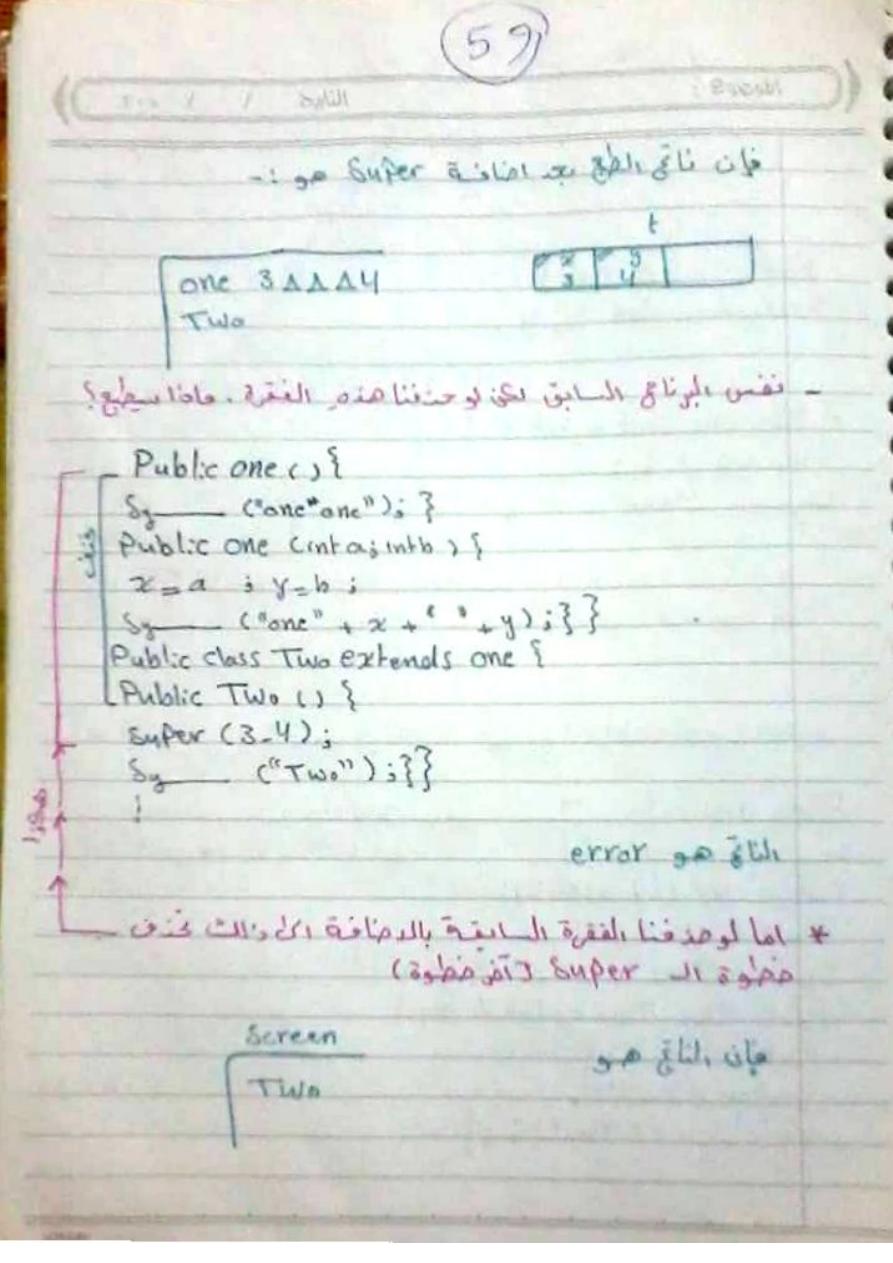 59
الموضوع :
التاريخ / / ٢٠٠
فإن ناتج الطبع بعد اضافة Super هو :-
t
one 3ΔΔΔ4
Two
x y
3 4
- نفس البرنامج السابق لكن لو حذفنا هذه الفقرة . ماذا سيطبع؟
Public one () {
Sy____ ("one"one"); }
Public one (int a; int b) {
x = a ; y = b ;
Sy____ ("one" + x + " " + y) ; } }
Public class Two extends one {
Public Two () {
Super (3-4) ;
Sy____ ("Two") ; }}
حذف
هكذا
الناتج هو error
* اما لو حذفنا الفقرة السابقة بالاضافة الى ذلك نحذف
خطوة الـ Super (آخر خطوة)
فإن الناتج هو
Screen
Two